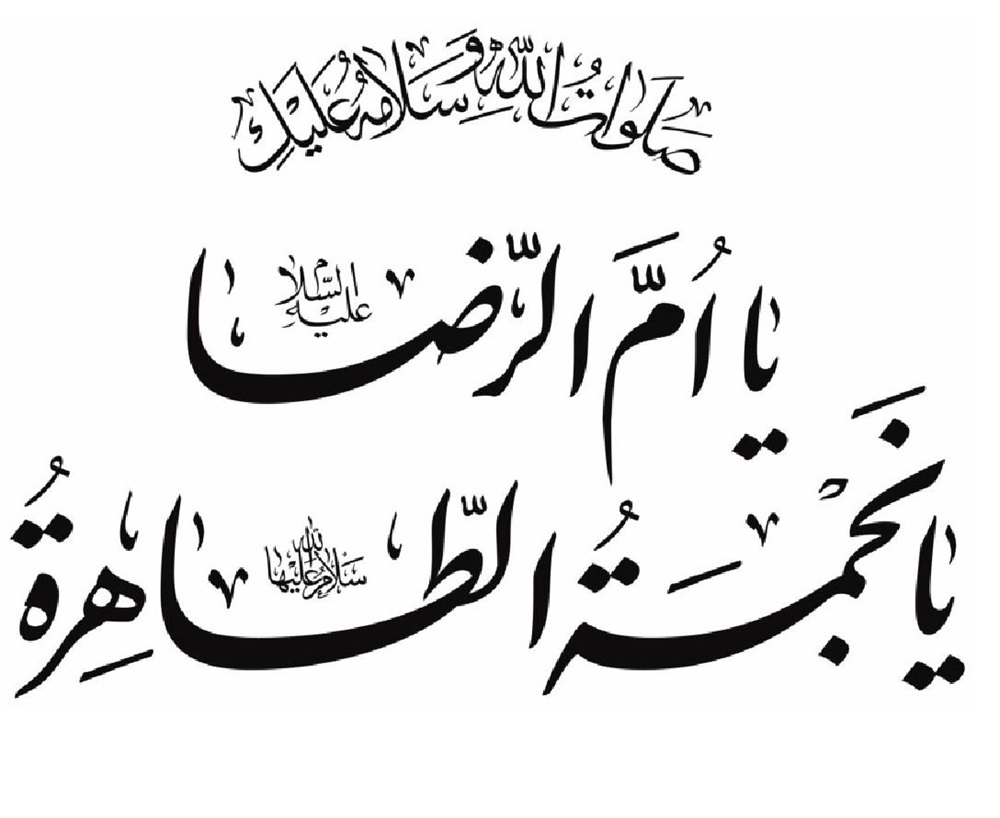 صَلَواتُ اللهِ وَسَلامُهُ عَلَیْكِ
یا اُمَّ الرّضا علیه السّلام
یا نَجْمَةُ الطّاهِرَةُ سلام الله علیها